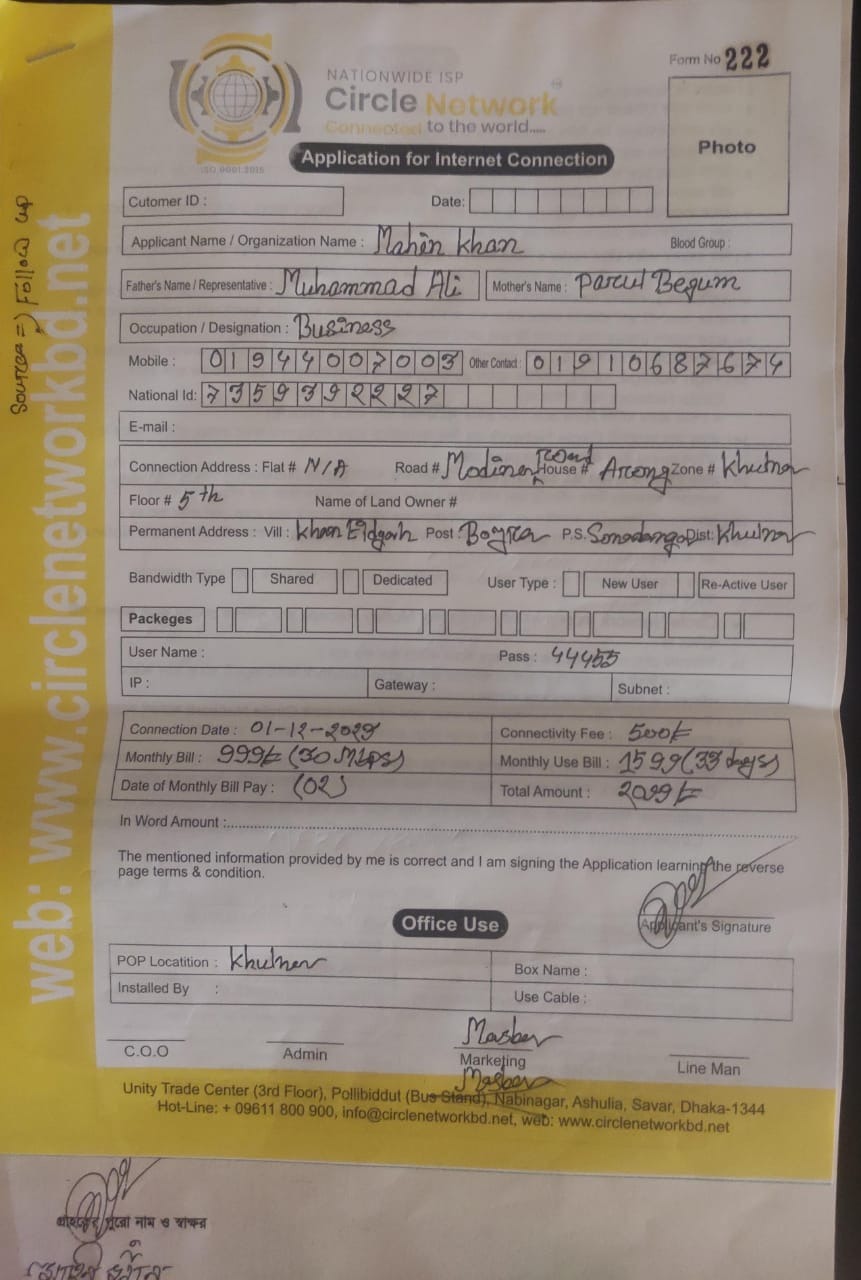 Form No 222
NATIONWIDE ISP
Circle Network
Connected to the world.....
ISO 9001:2015
Application for Internet Connection
Photo
Cutomer ID :
Date:
Applicant Name / Organization Name : Mahin Khan Blood Group :
Father's Name / Representative : Muhammad Ali Mother's Name : Parul Begum
Occupation / Designation : Business
Mobile : 01944007003 Other Contact : 01910687674
National Id: 7359392227
E-mail :
Connection Address : Flat # N/A Road # Modina Road House # Zone # Khulna
Floor # 5th Name of Land Owner #
Permanent Address : Vill : Khan Eidgah Post : Boyra P.S. Sonadanga Dist: Khulna
Bandwidth Type Shared Dedicated User Type : New User Re-Active User
Packeges
User Name : Pass : 44455
IP : Gateway : Subnet :
Connection Date : 01-12-2029 Connectivity Fee : 500/=
Monthly Bill : 999/= (30 Mbps) Monthly Use Bill : 1599 (33 days)
Date of Monthly Bill Pay : (02) Total Amount : 2099/=
In Word Amount :
The mentioned information provided by me is correct and I am signing the Application learning the reverse
page terms & condition.
Applicant's Signature
Office Use
POP Locatition : Khulna Box Name :
Installed By : Use Cable :
C.O.O Admin Marketing Line Man
Unity Trade Center (3rd Floor), Pollibiddut (Bus Stand), Nabinagar, Ashulia, Savar, Dhaka-1344
Hot-Line: + 09611 800 900, info@circlenetworkbd.net, web: www.circlenetworkbd.net
web: www.circlenetworkbd.net
Source => Follow up
পুরো নাম ও স্বাক্ষর